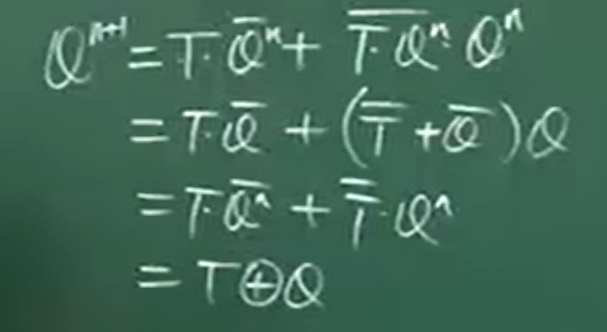 Qⁿ⁺¹ = T·Q̄ⁿ + \overline{T·Qⁿ}·Qⁿ
= T·Q̄ + (T̄ + Q̄)Q
= T·Q̄ⁿ + T̄·Qⁿ
= T⊕Q